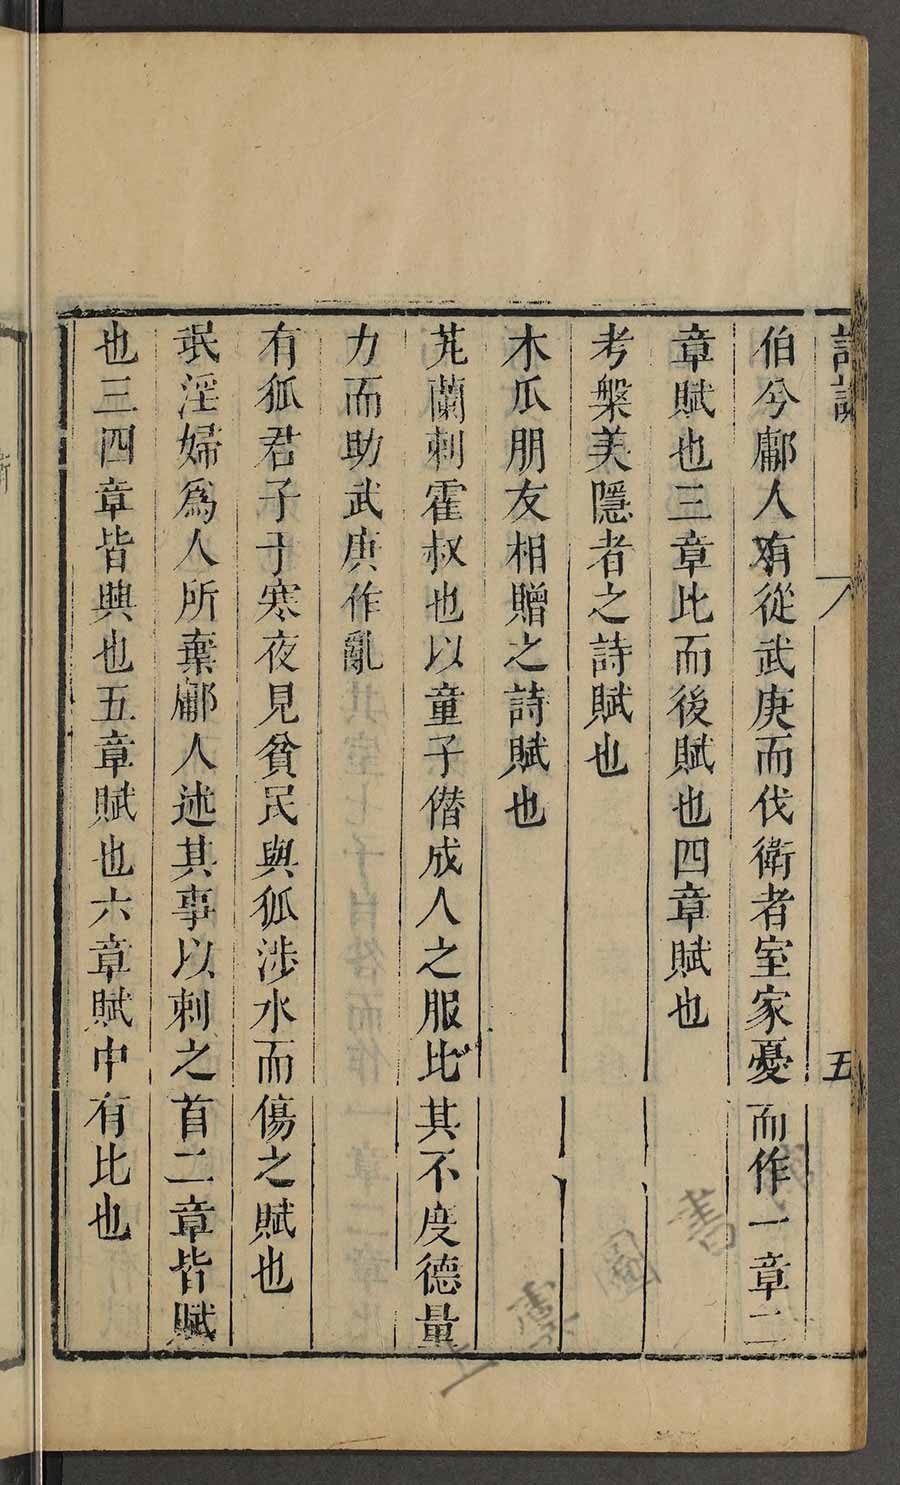 伯兮鄘人有從武庚而伐衛者室家憂而作一章二
章賦也三章比而後賦也四章賦也
考槃美隱者之詩賦也
木瓜朋友相贈之詩賦也
芄蘭刺霍叔也以童子僭成人之服比其不度德量
力而助武庚作亂
有狐君子于寒夜見貧民與狐涉水而傷之賦也
氓淫婦爲人所棄鄘人述其事以刺之首二章皆賦
也三四章皆興也五章賦也六章賦中有比也
五